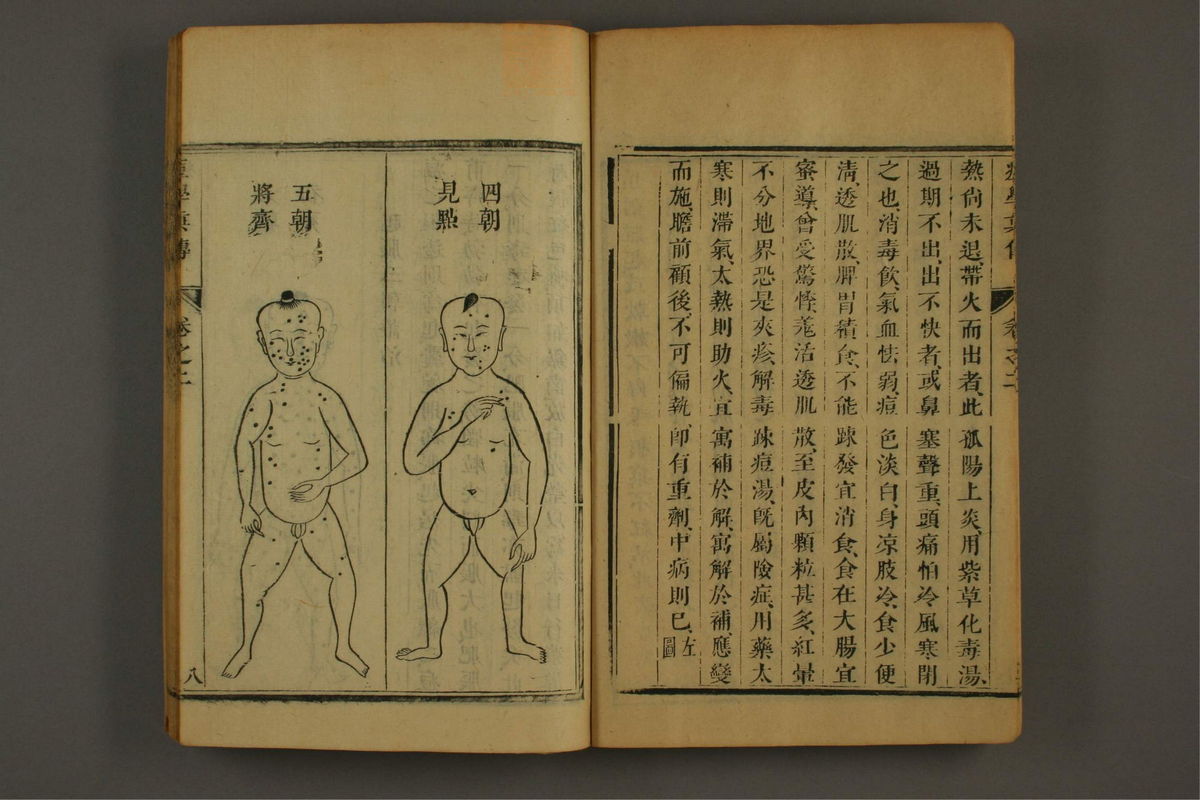 熱尙未退、帶火而出者、此孤陽上炎、用紫草化毒湯、
過期不出、出不快者、或鼻塞聲重、頭痛怕冷、風寒閉
之也、消毒飲、氣血怯弱、痘色淡白、身凉肢冷、食少便
淸、透肌散、脾胃積食、不能踈發、宜消食、食在大腸宜
蜜導、曾受驚悸、羗活透肌散、至皮內顆粒甚多、紅暈
不分地界、恐是夾疹、解毒踈痘湯、旣屬險症、用藥太
寒則滯氣、太熱則助火、宜寓補於解、寓解於補、應變
而施、瞻前顧後、不可偏執、卽有重劑、中病則已、左圖
四朝
見點
五朝
將齊
卷之二
八